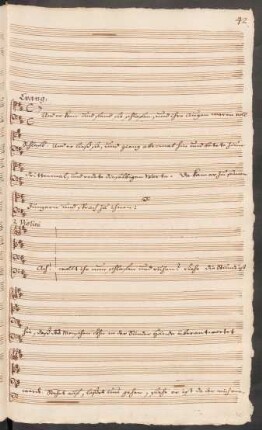 42
Evang.
Und er kam und fand sie schlafend, und ihre Augen waren voll
Schlafs. Und er ließ sie, und gieng abermal hin und betete zum
dritten mal, und redete dieselbigen Worte. Da kam er zu seinen
Jüngern und sprach zu ihnen:
2 Violini
Ach! wollt ihr nun schlafen und ruhen? siehe die Stunde ist
hie, daß des Menschen Sohn in der Sünder Hände überantwortet
wird. Stehet auf, laßet uns gehen, siehe er ist da der mich